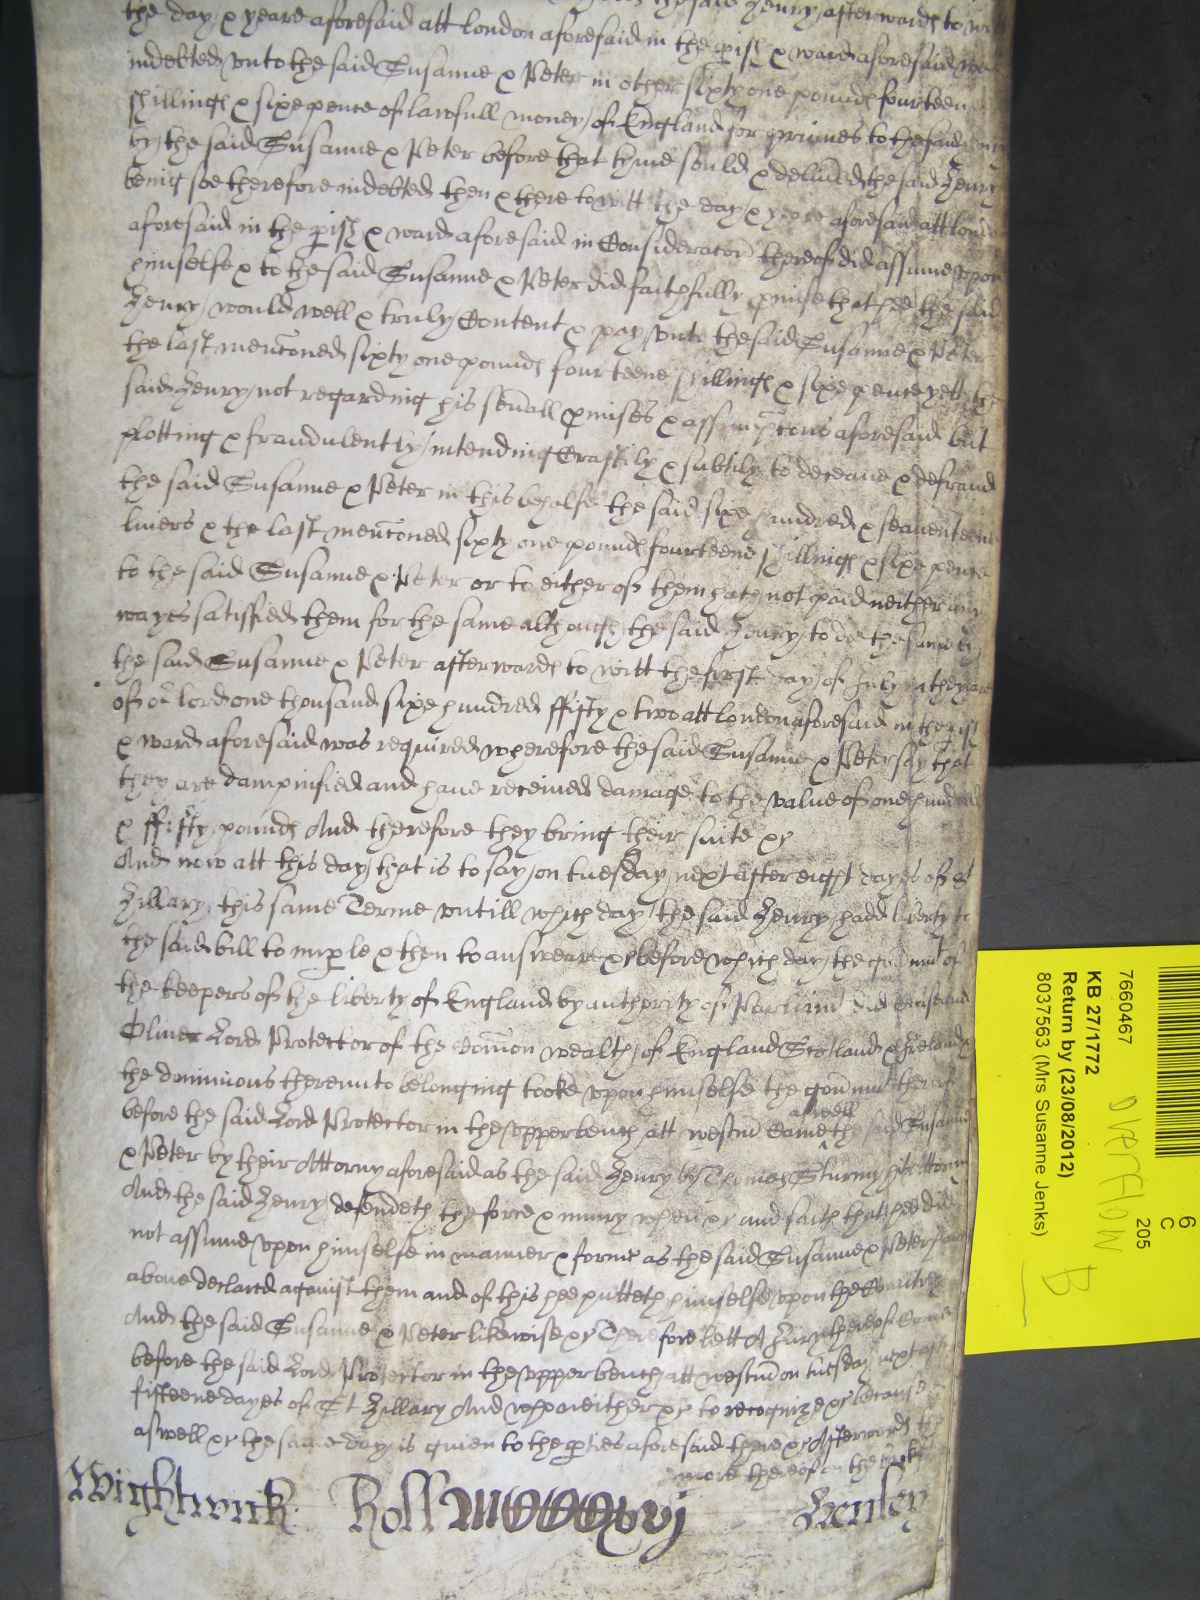 the said Henry afterwards to witt
the day & yeare aforesaid att London aforesaid in the pish & ward aforesaid was
indebted unto the said Susanne & Peter in other sixty one pounds fourteene
shillings & sixe pence of lawfull money of England for
by the said Susanne & Peter before that tyme sould & deliued the said Henry
being soe therefore indebted then & there to witt the day & yeare aforesaid att London
aforesaid in the pish & ward aforesaid in Consideracon thereof did assume upon
himselfe & to the said Susanne & Peter did faithfully pmise that hee the said
Henry would well & truly Content & pay unto the said Susanne & Peter
the last menconed sixty one pounds fourteene shillings & sixe pence yett the
said Henry not regarding his seuall pmises & assumpcons aforesaid but
plotting & fraudulently intending Craftily & subtily to deceaue & defraud
the said Susanne & Peter in this behalfe the said sixe hundred & seauenteene
liuers & the last menconed sixty one pounds fourteene shillings & sixe pence
to the said Susanne & Peter or to either of them hath not paid neither any
wayes satisfied them for the same although the said Henry to doe the same by
the said Susanne & Peter afterwards to witt the first day of July in the yeare
of or lord one thousand sixe hundred ffifty & two att London aforesaid in the pish
& ward aforesaid was required wherefore the said Susanne & Peter say that
they are dampnified and haue receiued damage to the value of one hundred
& ffifty pounds And therefore they bring their suite &c
And now att this day that is to say on tuesday next after eight dayes of St
Hillary this same Terme untill which day the said Henry hadd liberty to
the said bill to imple & then to answeare &c before which day the gounmt of
the keepers of the liberty of England by authority of Parliamt did cease and
Oliuer Lord Protector of the Comon wealth of England Scotland & Ireland &
the dominions thereunto belonging tooke upon himselfe the gounmt thereof
aswell
before the said Lord Protector in the upper bench att westm Came the said Susanne
& Peter by their Attorny aforesaid as the said Henry by Thomas Sturmy his Attorny
And the said Henry defendeth the force & iniury when &c and saith that hee did
not assume upon himselfe in manner & forme as the said Susanne & Peter haue
aboue declared against them and of this hee putteth himselfe upon the Countrey
And the said Susanne & Peter likewise &c Therefore lett A Jury thereof Come
before the said Lord Protector in the upper bench att westm on tuesday next after
fifteene dayes of St Hillary And who neither &c to recognize &c because
aswell &c the same day is giuen to the pties aforesaid there &c Afterwards the
more thereof on the
Wightwick Roll Henley
7660467
KB 27/1772
Return by (23/08/2012)
8037563 (Mrs Susanne Jenks)
OVERFLOW
B
6
C
205